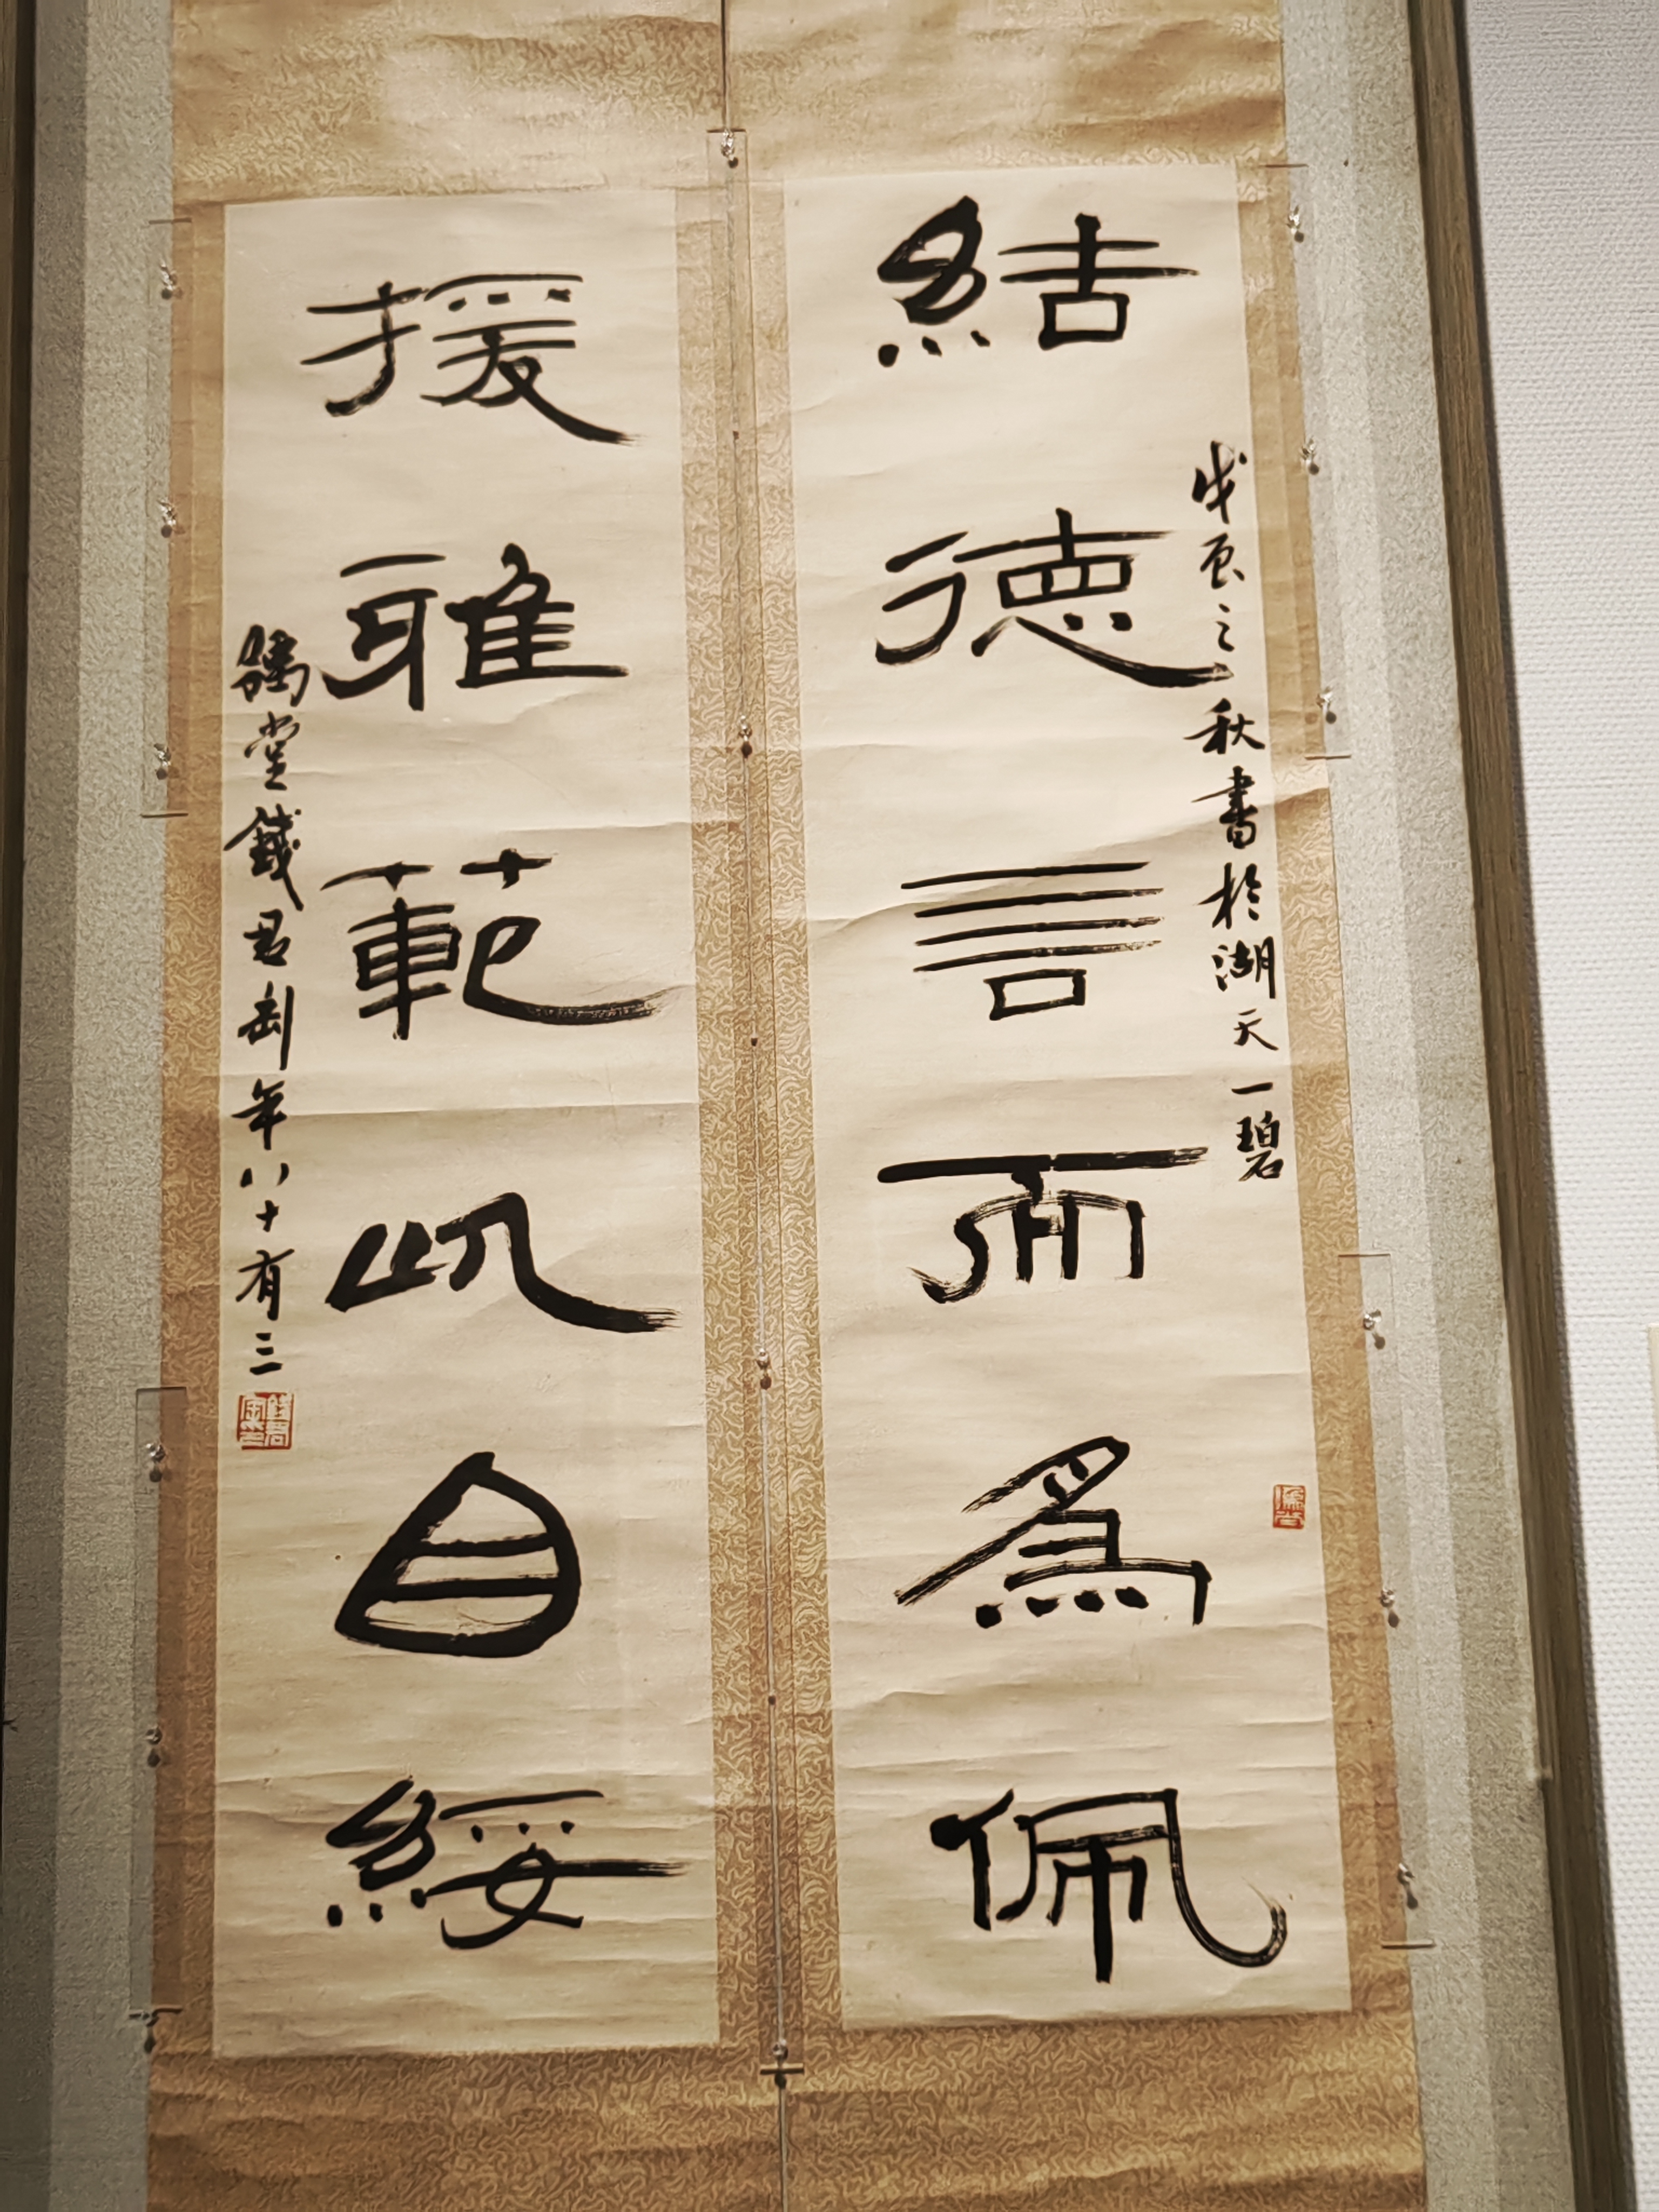 戊辰之秋書於湖天一碧
結德言而爲佩
援雅範以自綏
豫堂錢君匋年八十有三